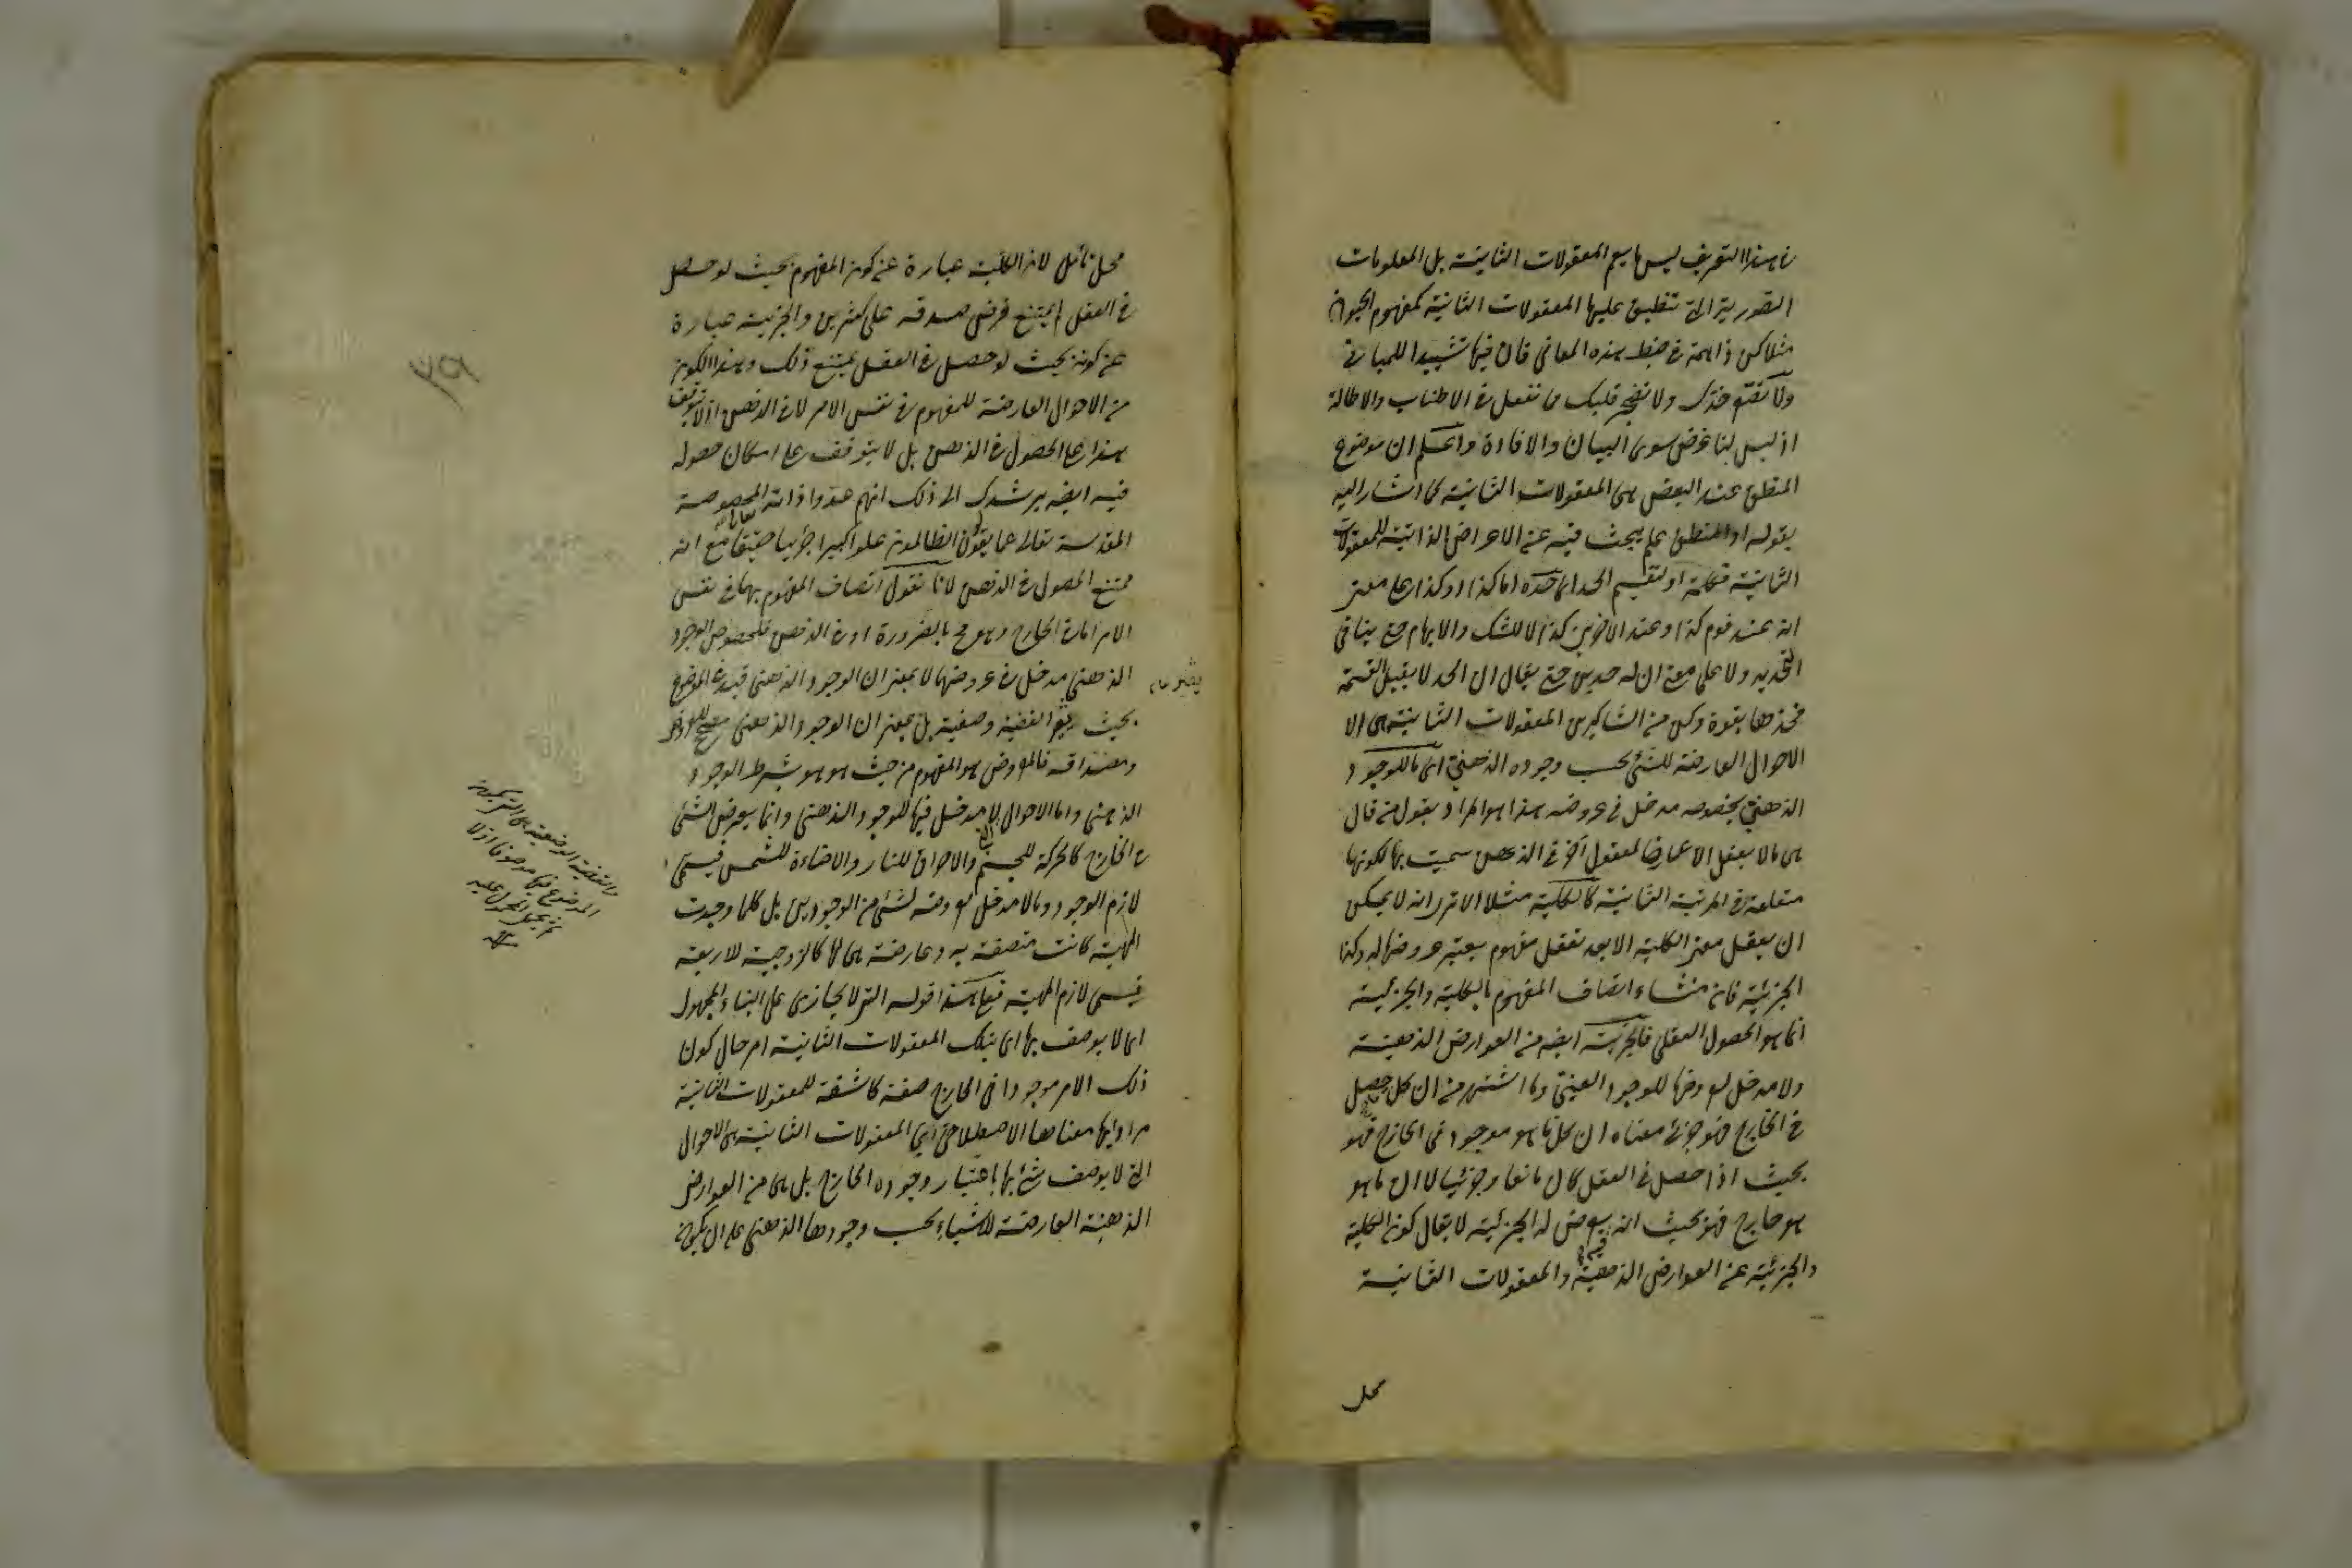 هذا التعريف ليس ما يعم المعقولات الثانية بل المعلومات
التصورية التي تنطبق عليها المعقولات الثانية كمفهوم الحيوان
مثلا كن ذا همة في ضبط هذه المعاني فان فيها تشييدا للمباني
ولا خدك ولا قلبك مما نفعل في الاطناب والاطالة
اذ ليس لنا غرض سوى البيان والافادة واعلم ان موضوع
المنطق عند البعض هي المعقولات الثانية كما اشار اليه
بقوله او المنطق علم يبحث فيه عن الاعراض الذاتية للمعقولات
الثانية فكلمة او لتقسيم الحد اي حده اما كذا او كذا على معنى
انه عند قوم كذا وعند الآخرين كذا لا للشك والابهام حتى ينافي
التحديد ولا على معنى ان له حدين حتى يقال ان الحد لا يقبل القسمة
فخذها بقوة وكن من الشاكرين المعقولات الثانية هي الا
الاحوال العارضة للشئ بحسب وجوده الذهني اي ما للوجود
الذهني بخصوصه مدخل في عروضه هذا هو المراد بقول من قال
هي ما لا يعقل الا عارضا لمعقول آخر في الذهن سميت بها لكونها
متعلقة في المرتبة الثانية كالكلية مثلا الا ترى انه لا يمكن
ان يعقل معنى الكلية الا بعد تعقل مفهوم يعتبر عروضها له وكذا
الجزئية فان منشاء اتصاف المفهوم بالكلية والجزئية
انما هو الحصول العقلي فالجزئية ايضه من العوارض الذهنية
ولا مدخل لعروضها للوجود العيني وما اشتهر من ان كل حصل
في الخارج فهو جزئي معناه ان كل ما هو موجود في الخارج فهو
بحيث اذا حصل في العقل كان مانعا وجزئيا لا ان ما هو
هو خارج فهو بحيث انه يعرض له الجزئية لا يقال كون الكلية
والجزئية من العوارض الذهنية والمعقولات الثانية
محل
محل تأمل لان الكلية عبارة عن كون المفهوم بحيث لو حصل
في العقل لم يمتنع فرض صدقه على كثيرين والجزئية عبارة
عن كونه بحيث لو حصل في العقل يمتنع ذلك وهذا الكون
من الاحوال العارضة للمفهوم في نفس الامر لا في الذهن اذ لا يتوقف
هذا على الحصول في الذهن بل لا يتوقف على امكان حصوله
فيه ايضه يرشدك الى ذلك انهم عدوا ذاته المخصوصة
المقدسة تعالى عما يقول الظالمون علوا كبيرا جزئيا حقيقيا مع انه
ممتنع الحصول في الذهن لانا نقول اتصاف المفهوم بهما في نفس
الامر اما في الخارج وهو مح بالضرورة او في الذهن فلخصوص الوجود
الذهني مدخل في عروضهما لا بمعنى ان الوجود الذهني قيد في الموضوع
بحيث القضية وصفية بل بمعنى ان الوجود الذهني مصحح للعروض
ومصداقه فالمعروض هو المفهوم من حيث هو هو بشرط الوجود
الذهني واما الاحوال لا مدخل فيها للوجود الذهني وانما يعرض للشئ
في الخارج كالحركة للجسم والاحراق للنار والاضاءة للشمس فيسمى
لازم الوجود وما لا مدخل لعروضه لشئ من الوجودين بل كلما وجدت
المهية كانت متصفة به وعارضة هي لها كالزوجية للاربعة
فيسمى لازم المهية فعلى هذا قوله التي لا يحاذى على البناء للمجهول
اي لا يوصف بها اي بتلك المعقولات الثانية امر حال كون
ذلك الامر موجودا في الخارج صفة كاشفة للمعقولات الثانية
مرادا بها معناها الاصطلاحي اي المعقولات الثانية هي الاحوال
التي لا يوصف شئ بها باعتبار وجوده الخارج بل هي من العوارض
الذهنية العارضة للاشياء بحسب وجودها الذهني على ان يكون
والقضية الوصفية هي التي يكون
الموضوع فيها موصوفا اولا
ثم يحمل المحمول عليه
منه
٣٩